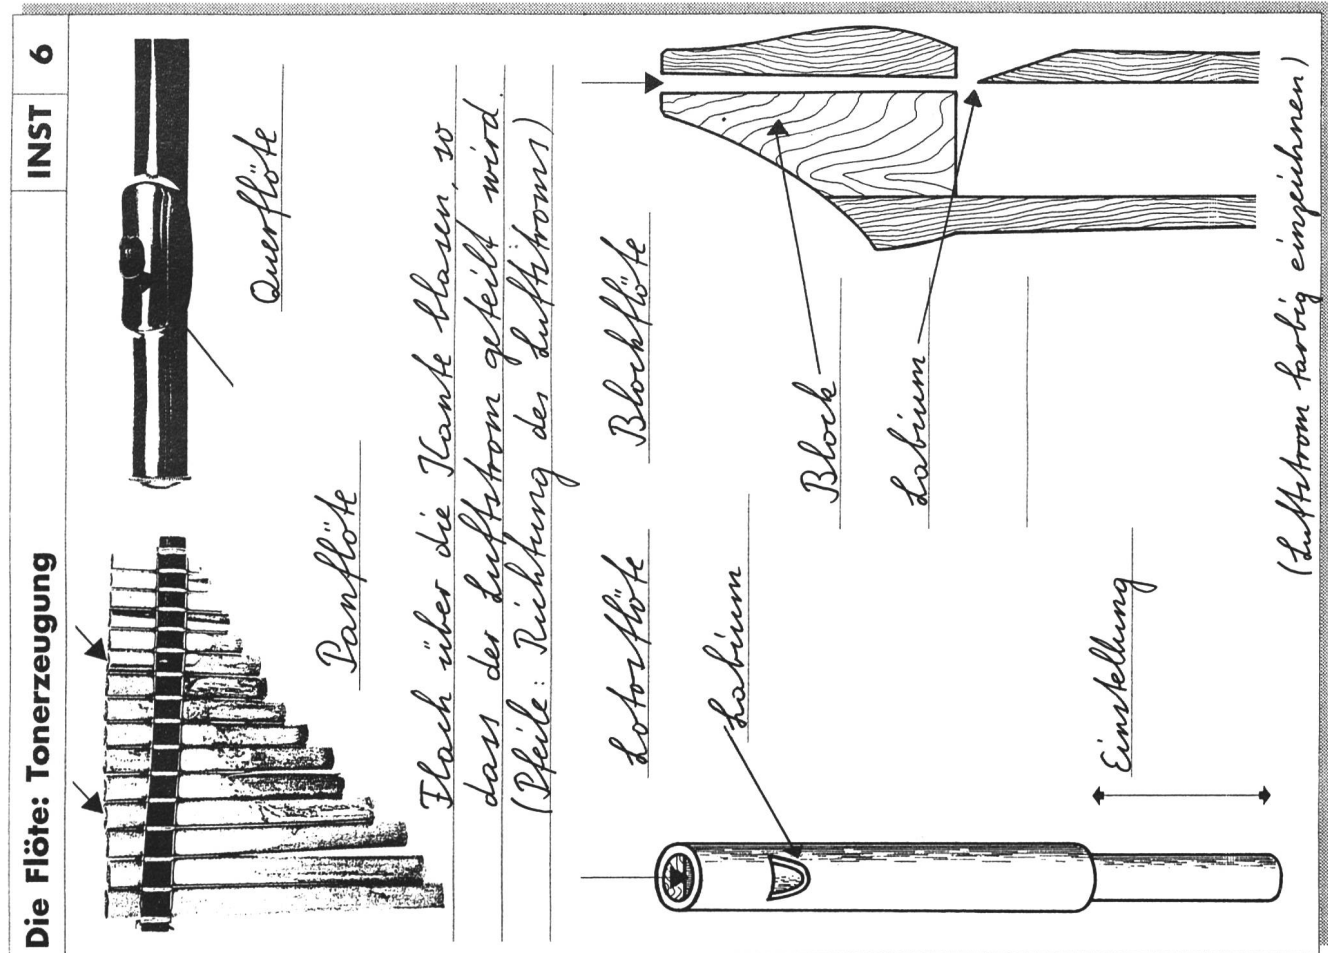 Die Flöte: Tonerzeugung
INST 6
Panflöte
Querflöte
Flach über die Kante blasen, so
dass der Luftstrom geteilt wird.
(Pfeile: Richtung des Luftstroms)
Lotosflöte
Blockflöte
Labium
Block
Labium
Einstellung
(Luftstrom farbig einzeichnen)